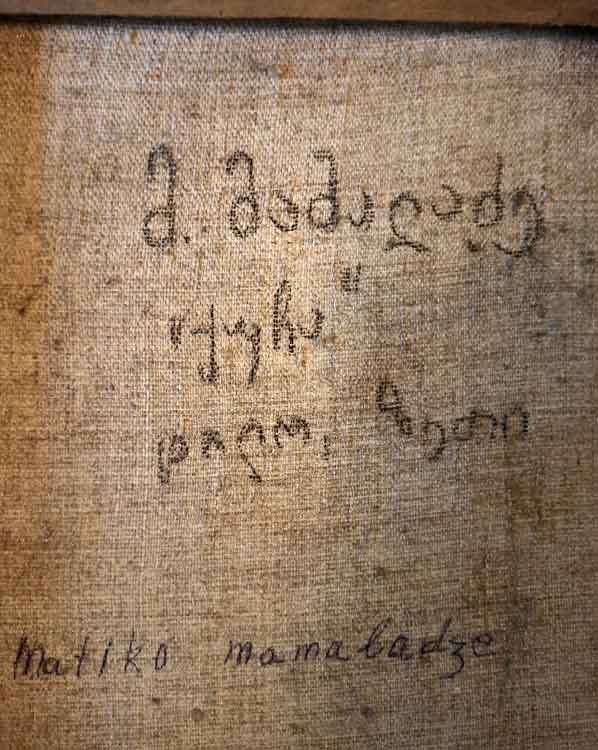 მ. მამალაძე
"ქუჩა"
ტილო, ზეთი
Matiko mamaladze